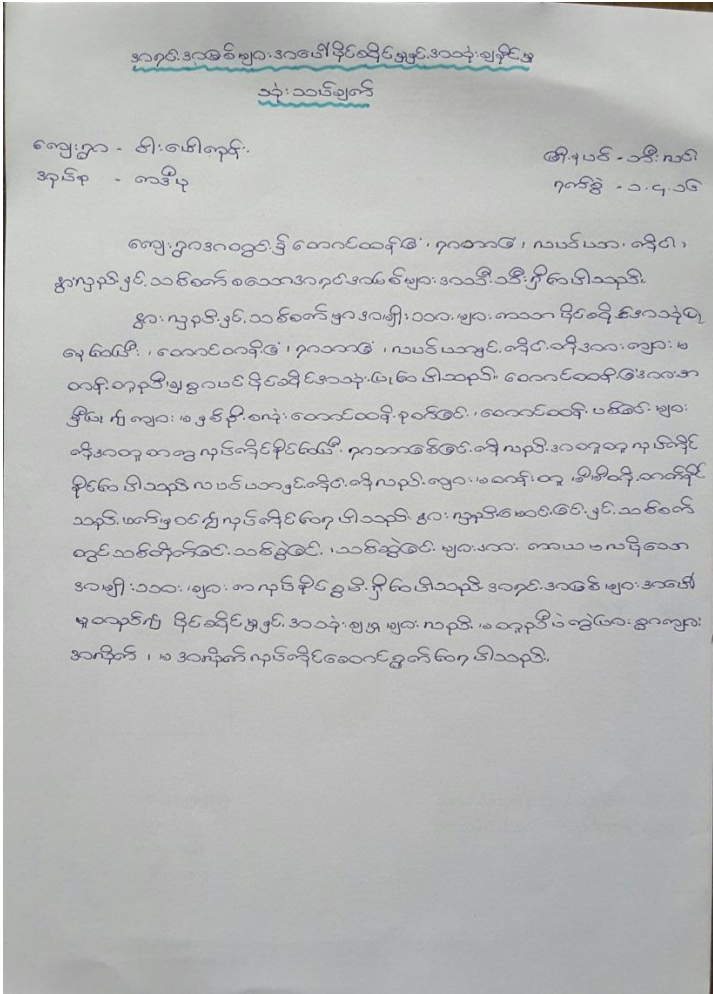 အရင်းအမြစ်များအပေါ်ပိုင်ဆိုင်မှုနှင့်အသုံးချနိုင်မှု
သုံးသပ်ချက်
ကျေးရွာ - ဝါးပေါကုန်း
အုပ်စု - ကဒီပု
မြို့နယ် - သီးလင်
ရက်စွဲ - ၁.၄.၁၆
ကျေးရွာအတွင်း၌ တောင်ထန်းခြံ၊ ရာဘာခြံ၊ လယ်ယာ၊ ကိုင်း၊
နွားလှည်းနှင့်သစ်စက်စသောအရင်းအမြစ်များအသီးသီးရှိကြပါသည်။
နွားလှည်းနှင့်သစ်စက်မှာအမျိုးသားများကသာပိုင်ဆိုင်အသုံးပြု
နေကြပြီး၊ တောင်ထန်းခြံ၊ ရာဘာခြံ၊ လယ်ယာနှင့်ကိုင်းတို့အားကျား၊မ
တန်းတူညီမျှစွာပင်ပိုင်ဆိုင်အသုံးပြုကြပါသည်။ တောင်ထန်းခြံအား
ပြုပြင်၍ ကျား၊မနှစ်ဦးစလုံးတောင်ထန်းခုတ်ခြင်း၊ တောင်ထန်းပစ်ခြင်းများ
ကိုအတူတကွလုပ်ကိုင်နိုင်ကြပြီး ရာဘာခြစ်ခြင်းကိုလည်းအတူတူလုပ်ကိုင်
နိုင်ကြပါသည်။ လယ်ယာနှင့်ကိုင်းကိုလည်းကျား၊မတန်းတူမိမိတို့တတ်နိုင်
သည့်ဖက်မှဝင်၍လုပ်ကိုင်ကြရပါသည်။ နွားလှည်းမောင်းခြင်းနှင့်သစ်စက်
တွင်သစ်တိုက်ခြင်း၊ သစ်ခွဲခြင်း၊ သစ်ဆွဲခြင်းများအားကာယဗလရှိသော
အမျိုးသားများကလုပ်ပိုင်ခွင့်ရှိကြပါသည်။ အရင်းအမြစ်များအပေါ်
မူတည်၍ ပိုင်ဆိုင်မှုနှင့်အသုံးချမှုများလည်းမတူညီပဲကွဲပြားစွာကျား
အလိုက်၊ မအလိုက်လုပ်ကိုင်ဆောင်ရွက်ကြရပါသည်။